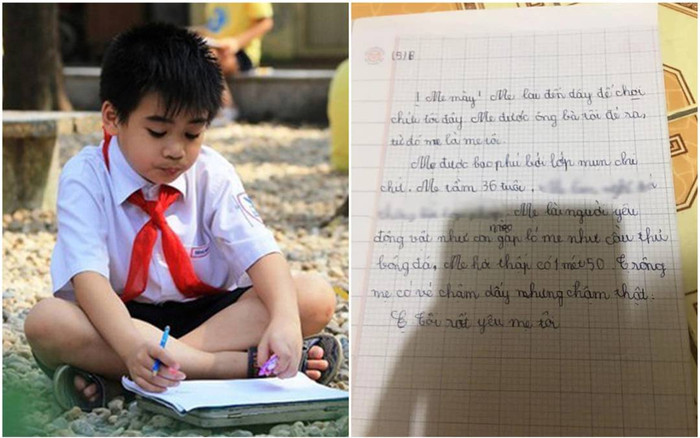 15/6
! Mẹ mày! Mẹ lại đến đây để chơi
chữ tôi đây. Mẹ được ông bà tôi đẻ ra,
từ đó mẹ là mẹ tôi.
Mẹ được bao phủ bởi lớp mụn chi
chít. Mẹ tầm 36 tuổi,
Mẹ là người yêu
động vật như con mèo gặp bố mẹ như cầu thủ
bóng đá. Mẹ hơi thấp có 1 mét 50. Trông
mẹ có vẻ chậm dãy nhưng chậm thật.
Tôi rất yêu mẹ tôi